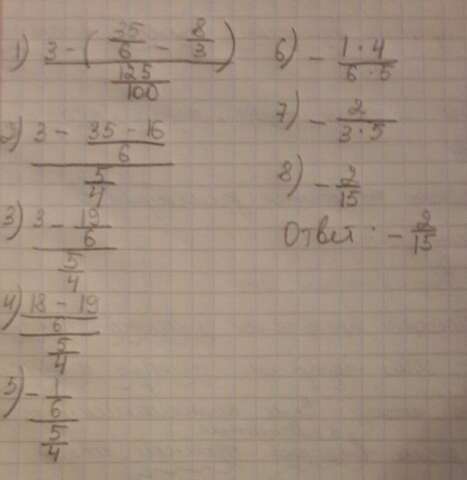 1) 3 - (35/6 - 8/3) / 125/100
2) 3 - 35 - 16/6 / 5/4
3) 3 - 19/6 / 5/4
4) 18 - 19/6 / 5/4
5) - 1/6 / 5/4
6) - 1 · 4/6 · 5
7) - 2/3 · 5
8) - 2/15
Ответ: - 2/15